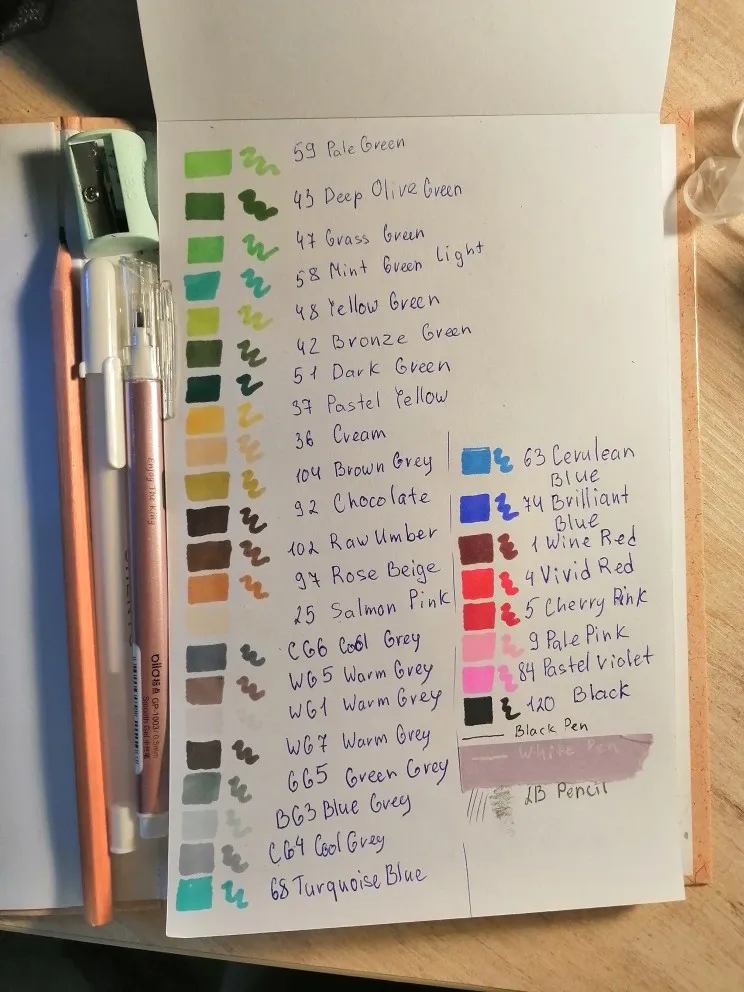 59 Pale Green
43 Deep Olive Green
47 Grass Green
58 Mint Green Light
48 Yellow Green
42 Bronze Green
51 Dark Green
37 Pastel Yellow
36 Cream
104 Brown Grey
92 Chocolate
102 Raw Umber
97 Rose Beige
25 Salmon Pink
CG6 Cool Grey
WG5 Warm Grey
WG1 Warm Grey
WG7 Warm Grey
GG5 Green Grey
BG3 Blue Grey
CG4 Cool Grey
68 Turquoise Blue
63 Cerulean
Blue
74 Brilliant
Blue
1 Wine Red
4 Vivid Red
5 Cherry Pink
9 Pale Pink
84 Pastel Violet
120 Black
Black Pen
White Pen
2B Pencil
Enjoy The King
GP-1003/0.5mm